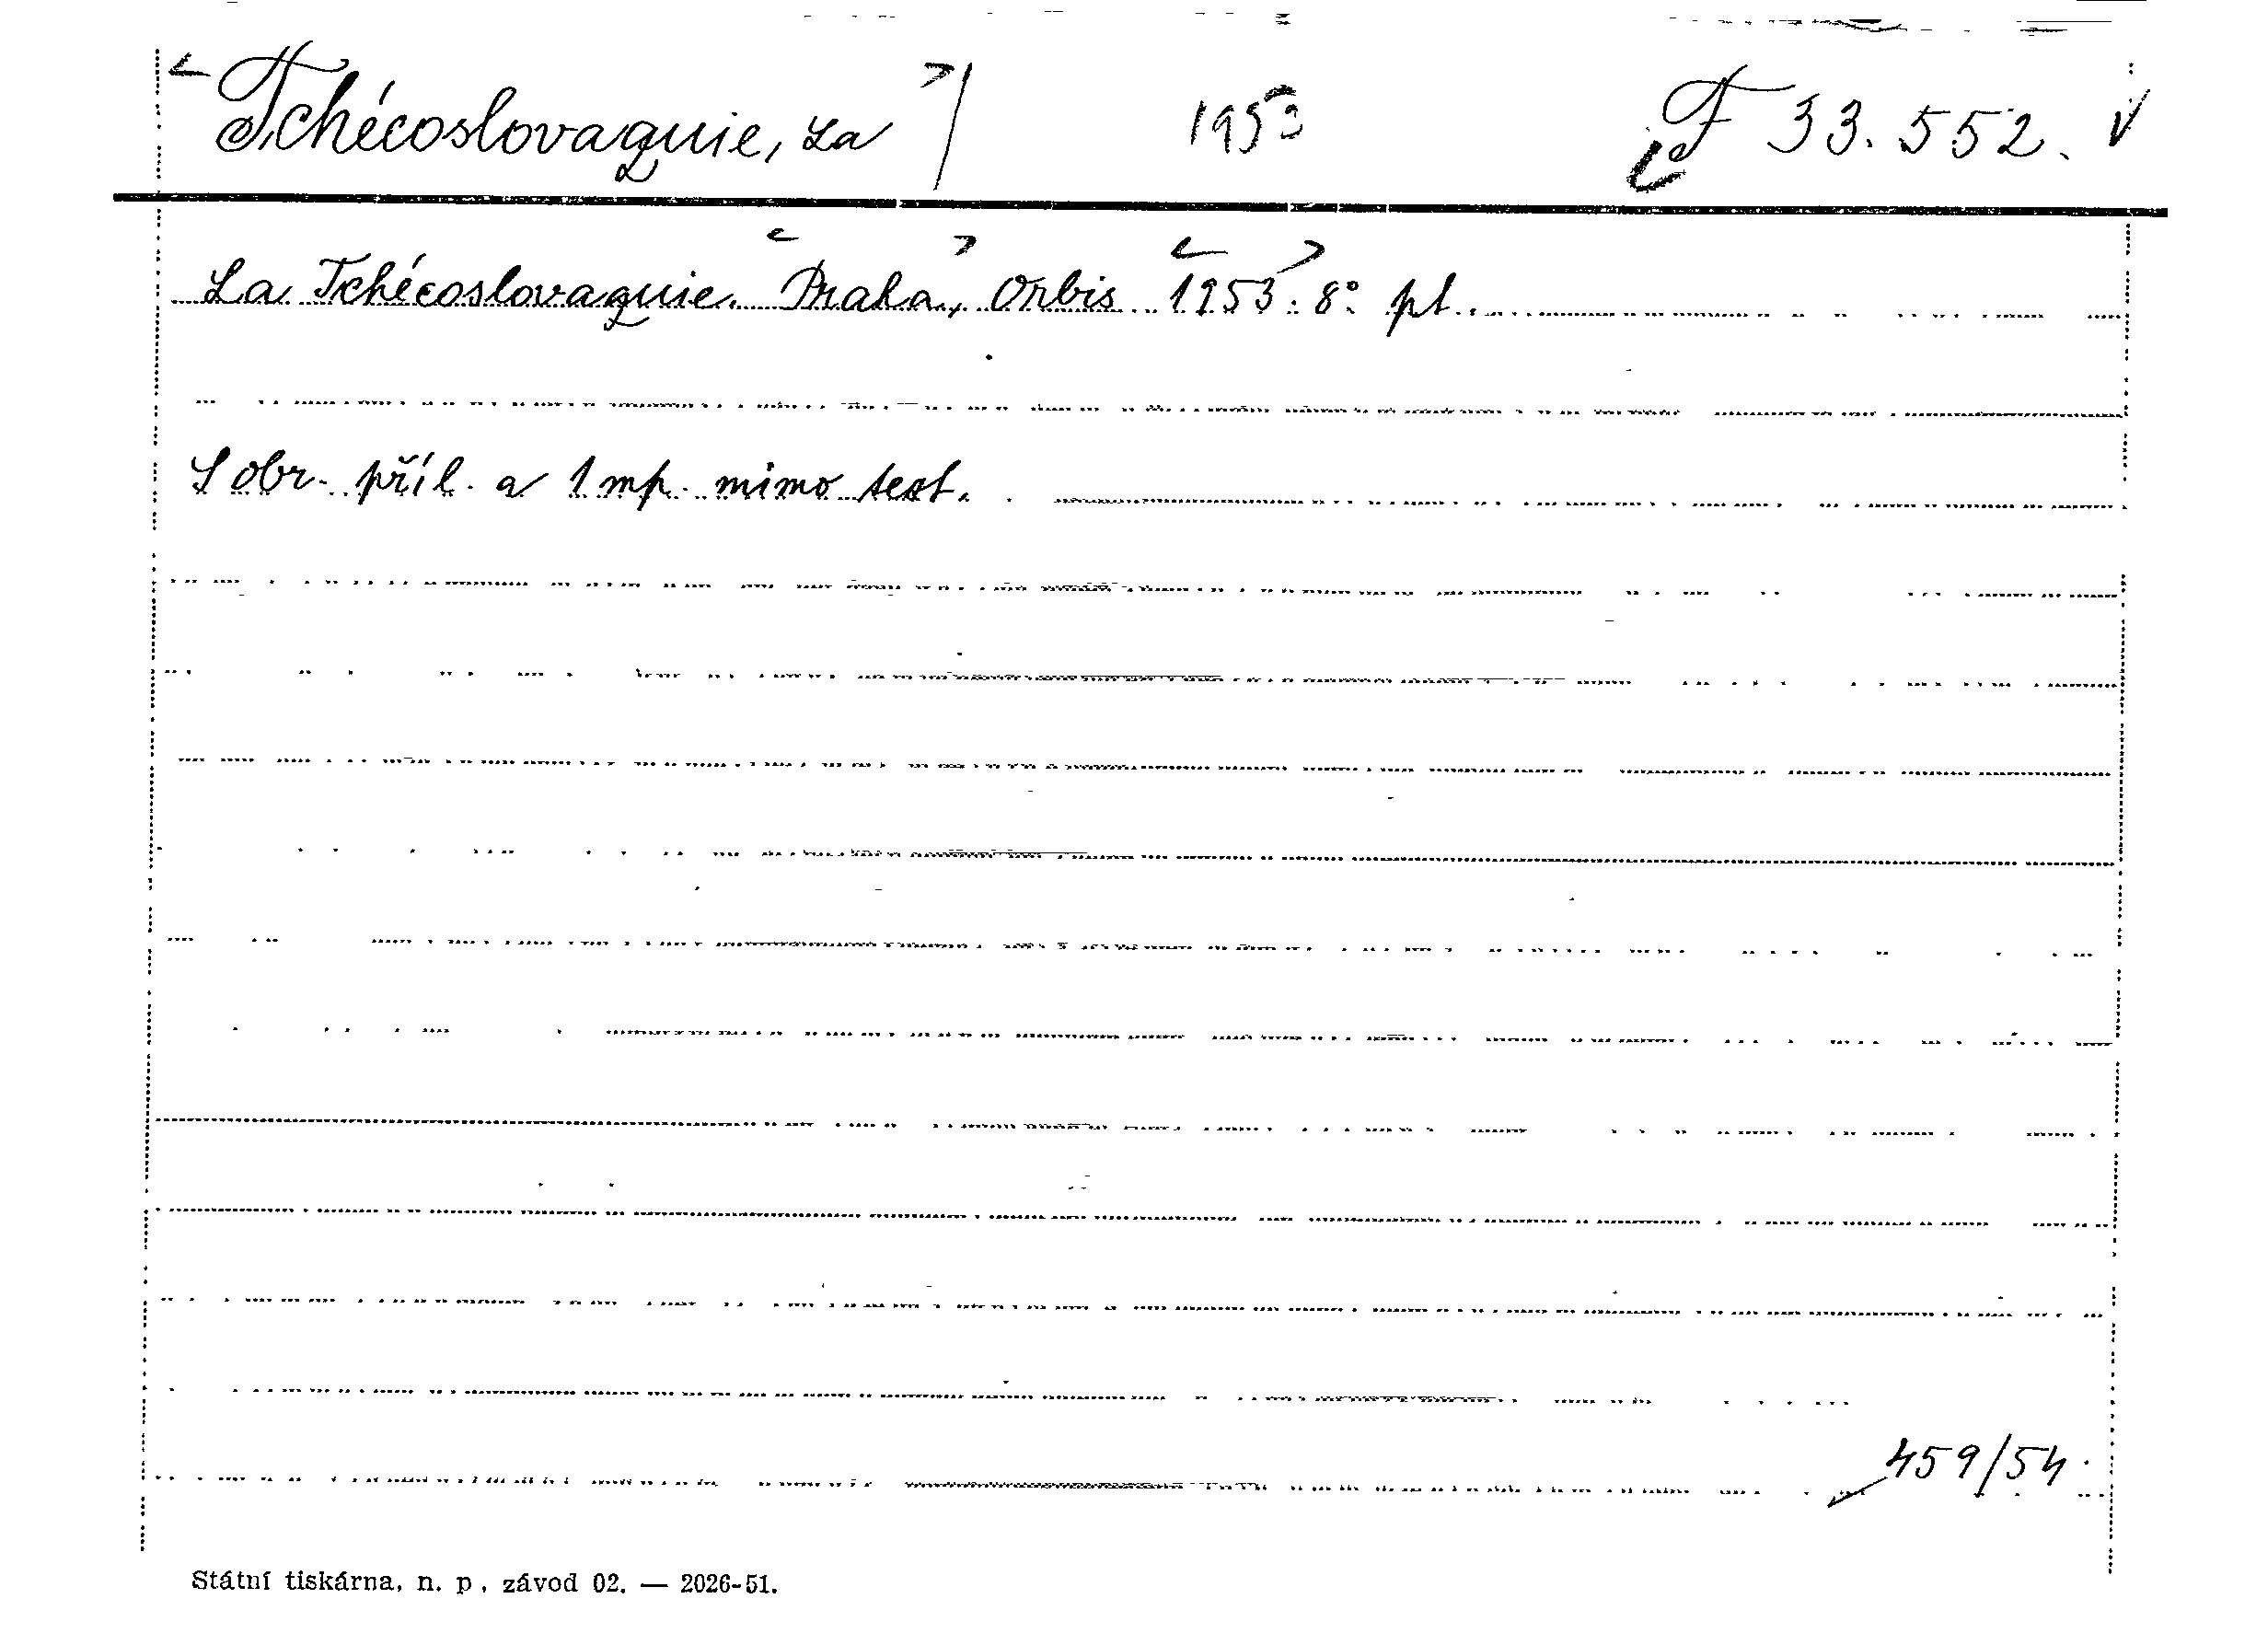 < Tchécoslovaquie, La >/ 1953 F 33.552. √
La Tchécoslovaquie. <Praha>, Orbis <1953>. 8° pl.
S obr. příl. a 1 mp. mimo text.
459/54.
Státní tiskárna, n. p., závod 02. — 2026-51.